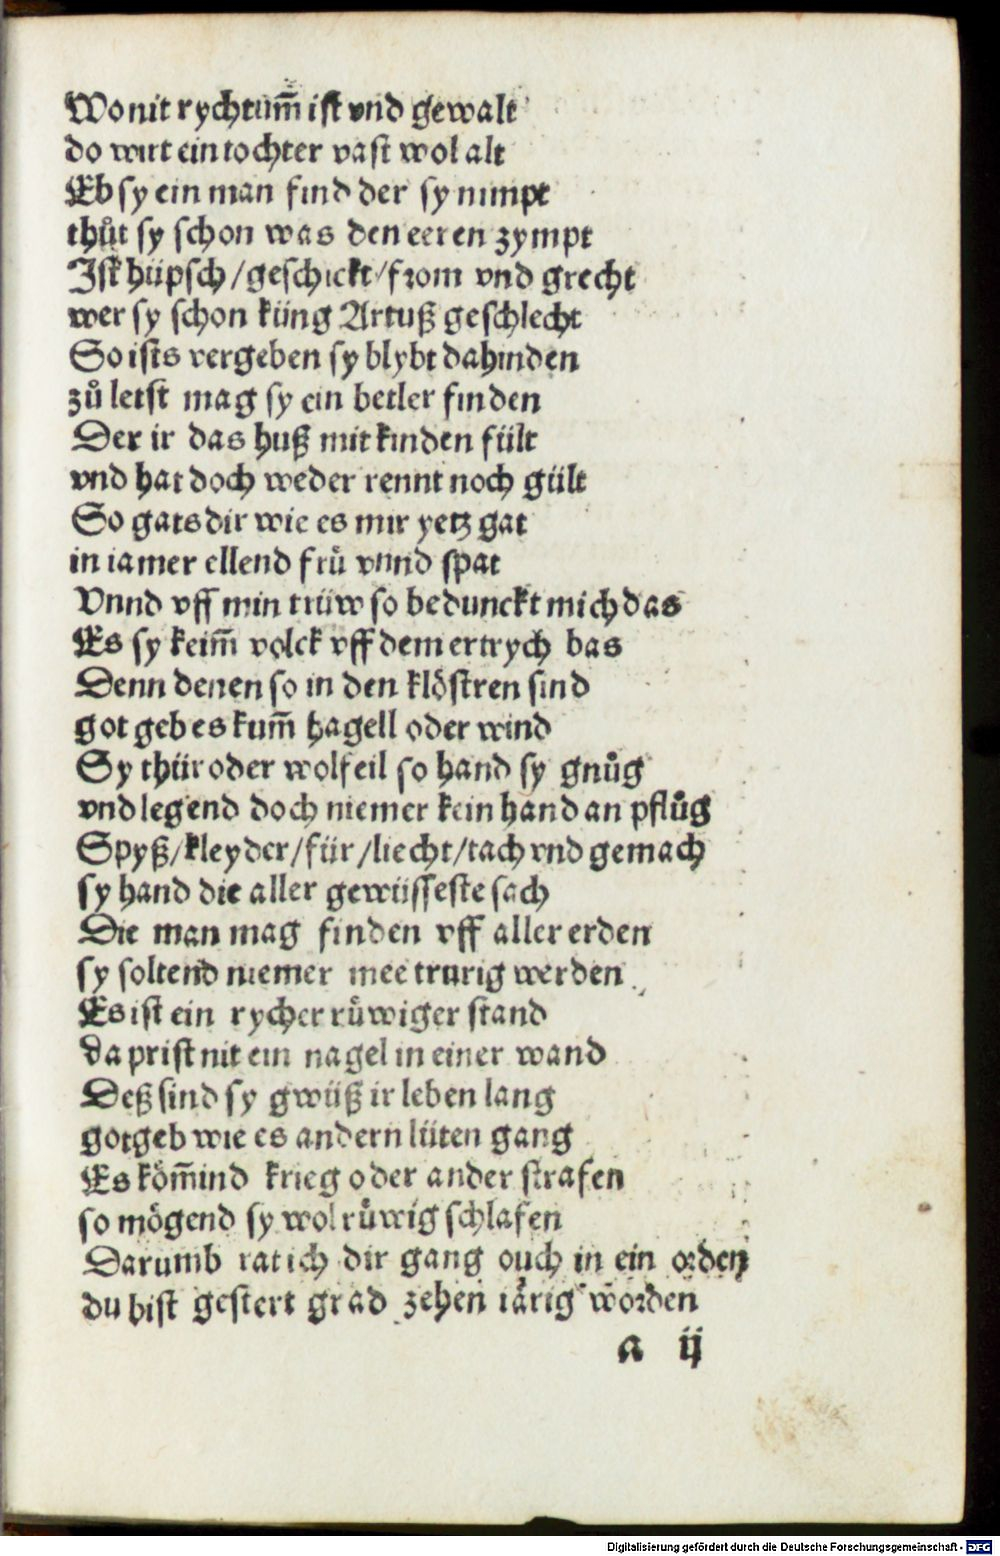 Wo nit rychtum̃ ist vnd gewalt
do wirt ein tochter vast wol alt
Eb sy ein man find der sy nimpt
thůt sy schon was den eeren zympt
Ist hüpsch/geschickt/from vnd grecht
wer sy schon küng Artuß geschlecht
So ists vergeben sy blybt dahinden
zů letst mag sy ein betler finden
Der ir das huß mit kinden fült
vnd hat doch weder rennt noch gült
So gats dir wie es mir yetz gat
in iamer ellend frů vnnd spat
Vnnd vff min trüw so bedunckt mich das
Es sy keim̃ volck vff dem ertrych bas
Denn denen so in den klöstren sind
got geb es kum̃ hagell oder wind
Sy thür oder wolfeil so hand sy gnůg
vnd legend doch niemer kein hand an pflůg
Spyß/kleyder/für/liecht/tach vnd gemach
sy hand die aller gewüsseste sach
Die man mag finden vff aller erden
sy soltend niemer mee trurig werden.
Es ist ein rycher růwiger stand
da prist nit ein nagel in einer wand
Deß sind sy gwüß ir leben lang
got geb wie es andern lüten gang
Es köm̃ind krieg oder ander strafen
so mögend sy wol růwig schlafen
Darumb rat ich dir gang ouch in ein orden
du bist gestert grad zehen iärig worden
a ij
Digitalisierung gefördert durch die Deutsche Forschungsgemeinschaft - DFG